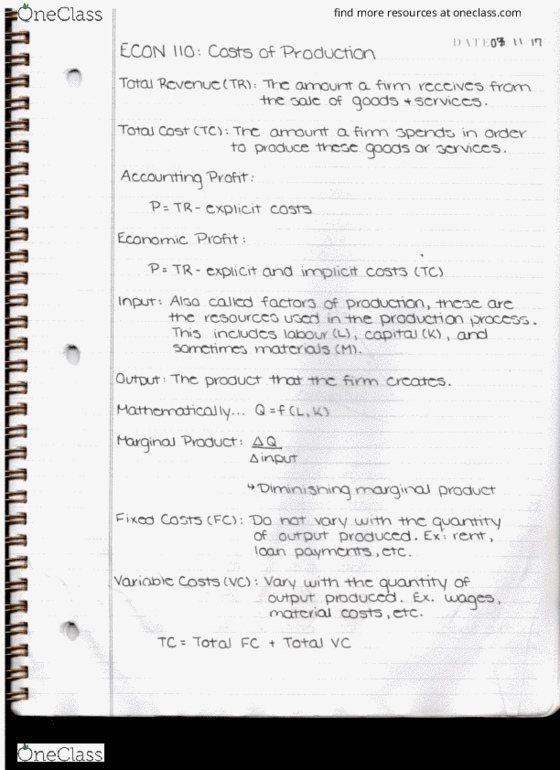 OneClass
find more resources at oneclass.com
DATE 03 11 17
ECON 110: Costs of Production
Total Revenue (TR): The amount a firm receives from
the sale of goods + services.
Total Cost (TC): The amount a firm spends in order
to produce these goods or services.
Accounting Profit:
P = TR - explicit costs
Economic Profit:
P = TR - explicit and implicit costs (TC)
Input: Also called factors of production, these are
the resources used in the production process.
This includes labour (L), capital (K), and
sometimes materials (M).
Output: The product that the firm creates.
Mathematically... Q = f(L,K)
Marginal Product: ΔQ
Δinput
↳ Diminishing marginal product
Fixed Costs (FC): Do not vary with the quantity
of output produced. Ex: rent,
loan payments, etc.
Variable Costs (VC): Vary with the quantity of
output produced. Ex. wages,
material costs, etc.
TC = Total FC + Total VC
OneClass